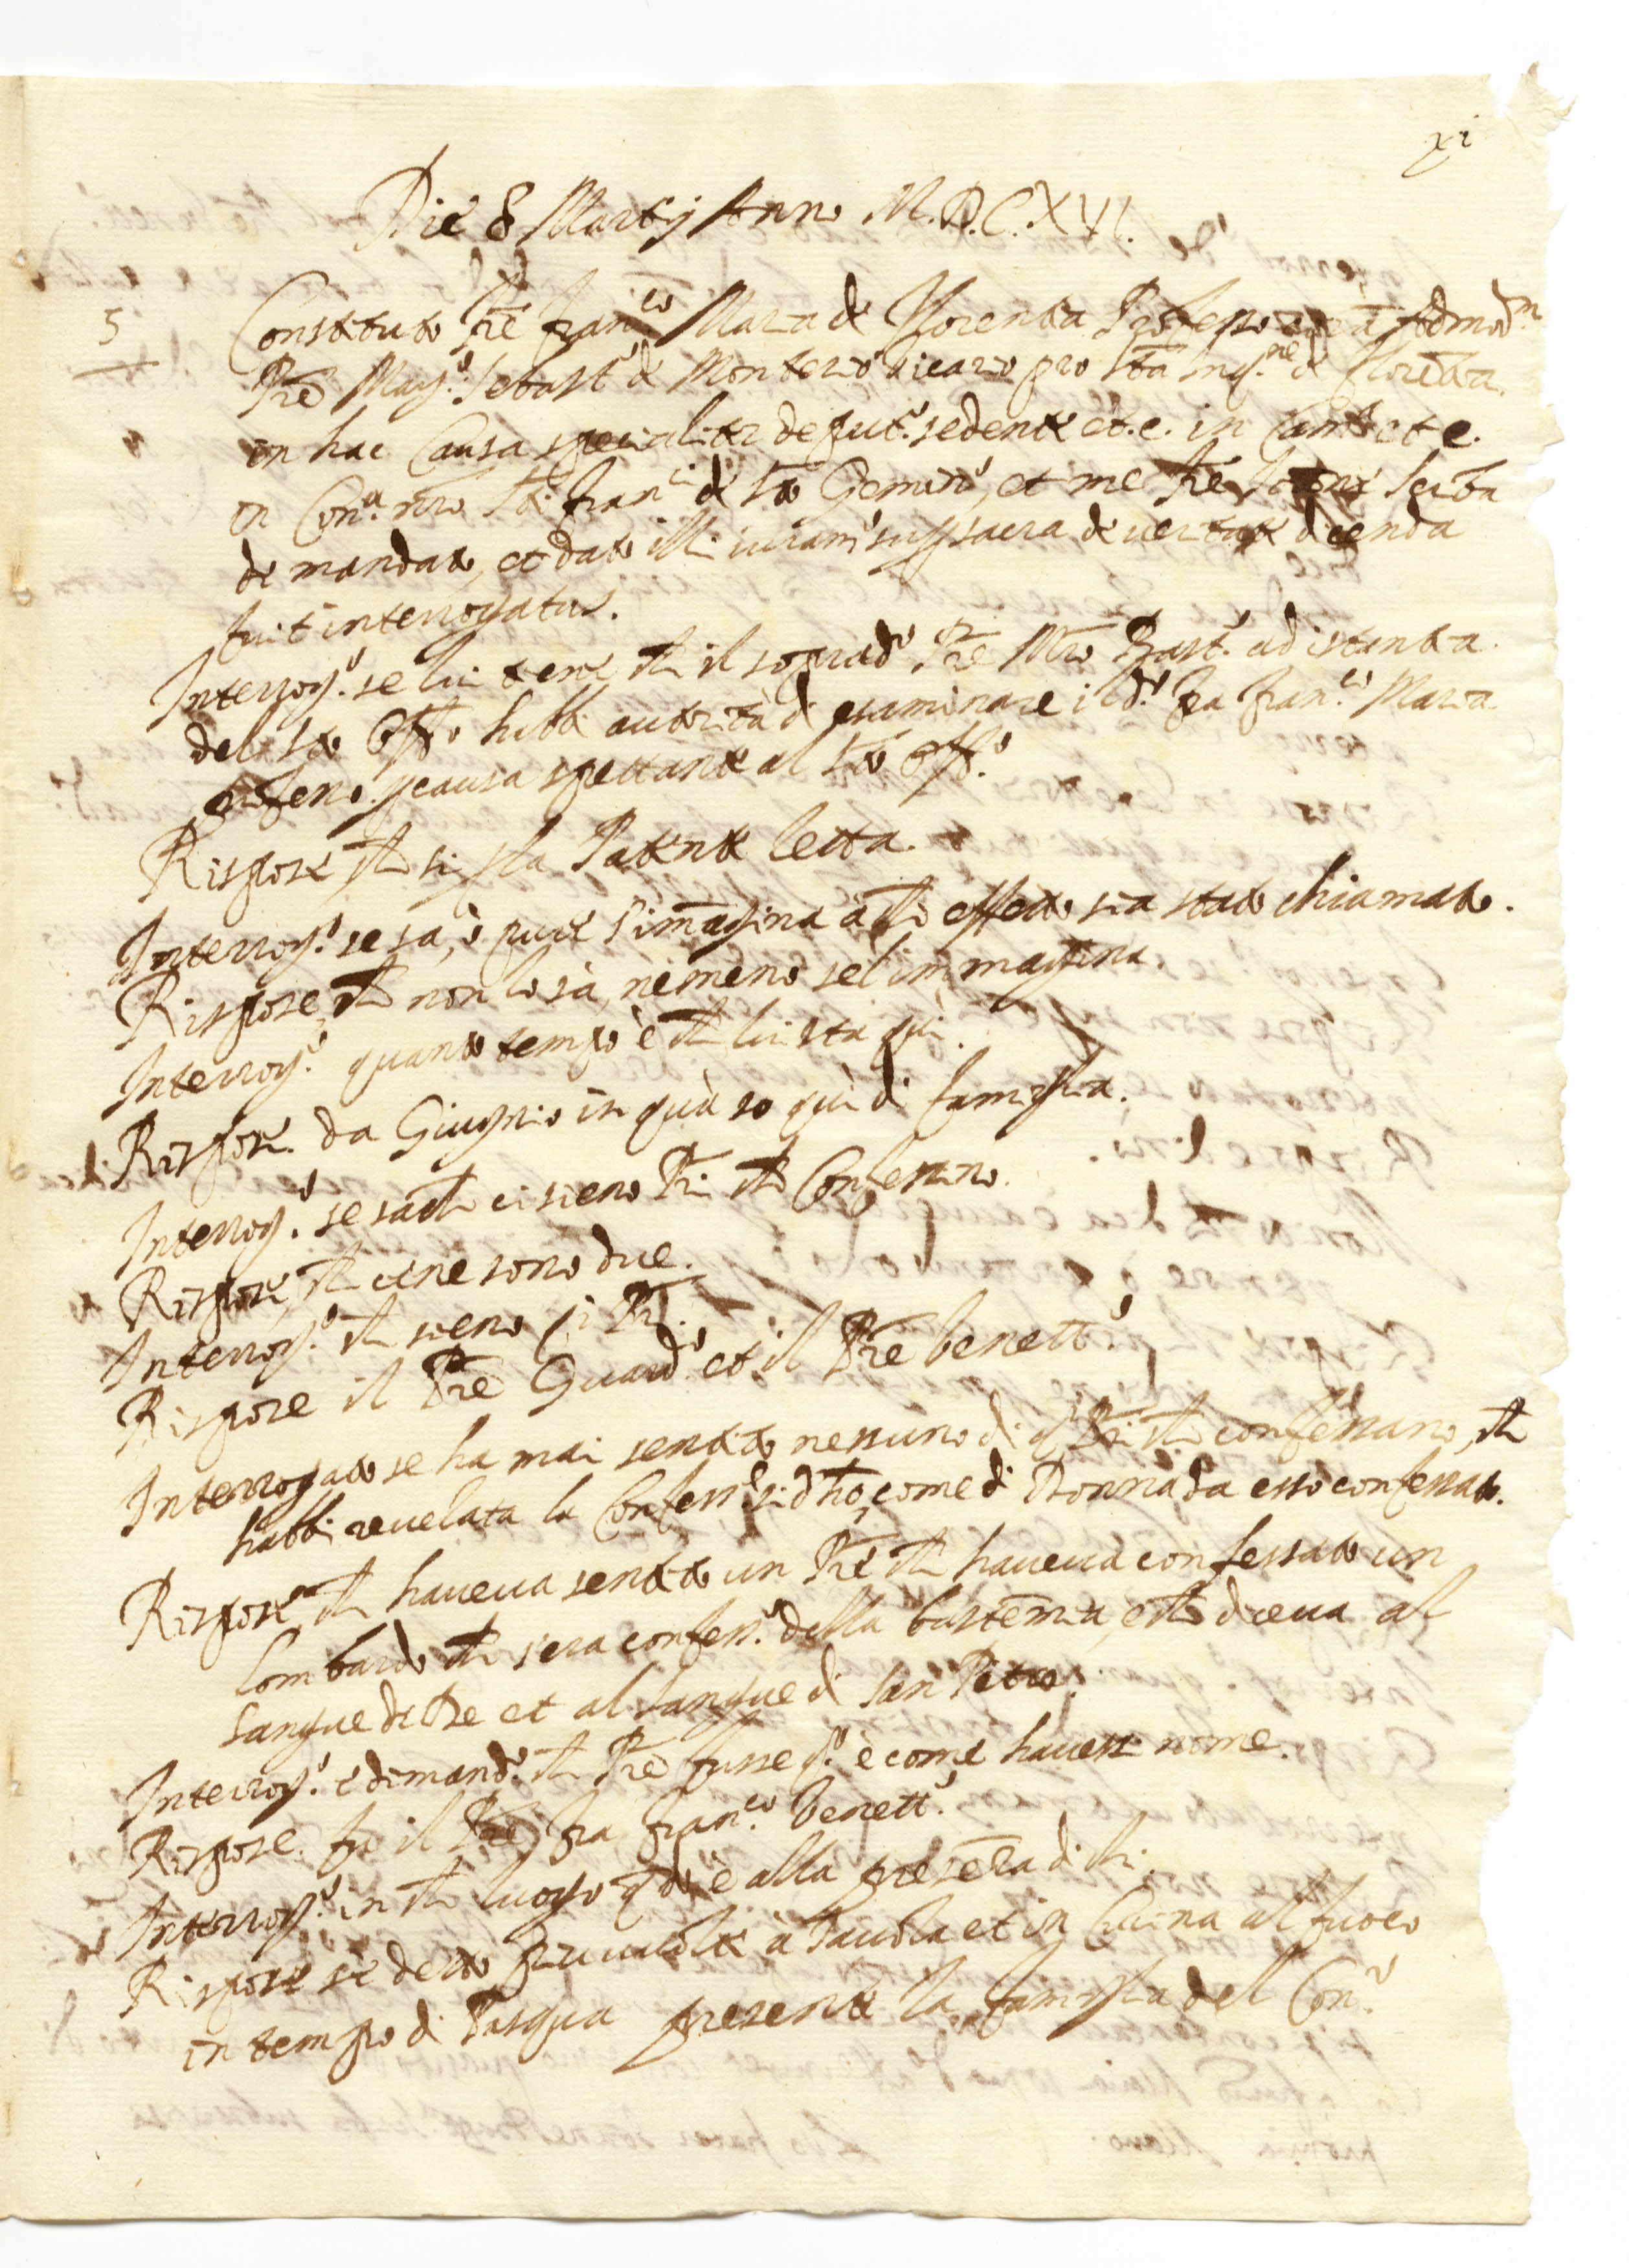 xi
Die 8 Martij Anno M.D.C.XVI.
5
Constituto fre Fran.co Maria de Florentia Professo coram Admod.m
Pre Mag.o Sebast.o de Monterio vicario pro sta Inq.ne d Florentia
in hac Causa specialiter deput.o sedente et.c. in Cam et c.
in Con.tu nro Sti Fran.ci de Sto Gemin.o, et me fre scriba
de mandato, et dato illi iuram.o sup sacra de veritate dicenda
fuit interrogatus.
Interrog.o se lui tene ch il soprad.o Pre Mro Bast.o ad istantia
del Sto Offo habbi autorità di esaminare il d.o fra Fran.co Maria
causa spettante al Sto Off.o
Rispose ch si p la Patente letta.
Interrog.o se sà, ò pure s'immagina à ch effetto sia stato chiamato.
Rispose, ch non lo sà, ne meno sel immagina.
Interrog.o quanto tempo è ch lui sta qui.
Rispose. da Giugnio in quà so qui di famiglia.
Interrog.o se sa ch ci sieno Pri ch Confessino.
Rispose, ch ce ne sono due.
Interrog.o ch sieno q.i Pri.
Rispose il Pre Guard.o et il Pre benett.o
Interrogato se ha mai sentito nessuno di q.i Pri ch confessano, ch
habbi revelata la Confess.e si d'ho, come di Donna da esso confessato.
Rispose ch haveva sentito un Pre ch haveva confessato un
lombardo ch s'era confess.o della bastemia, e ch diceva al
sangue di De et al sangue di San Petro.
Interrog.o e dimand.o ch Pre fusse q.o è come havesse nome.
Rispose. fu il Pre fra Fran.co benett.o
Interrog.o in ch luogo q dis è alla presenza di chi.
Rispose sè detto più volte à Tavola et in Cucina al fuoco
in tempo di Pasqua presente la famiglia del Con.to